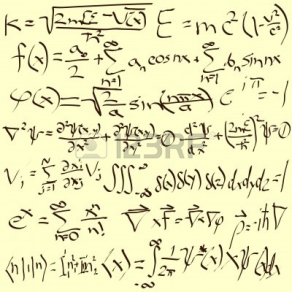 K = √(2m[E − V(x)]) E = mc²(1 − v²/c²)
f(x) = a₀/2 + ∑_{n=1}^∞ aₙ cos nx + ∑_{n=1}^∞ bₙ sin nx
φ(x) = √(2/a) sin(nπx/a) e^{iπ} = −1
∇²ψ = ∂²ψ(x,y)/∂x² + ∂²ψ(x,y)/∂y² = 0 d²ψ/dx² + (2m/ħ²)²ψ = 0
V_i = ∑_{j=1}^N ∂x_i/∂x_j V_j ∭_{−∞}^∞ δ(x)δ(y)δ(z) dx dy dz = 1
eˣ = ∑_{n=0}^∞ xⁿ/n! ∇⃗ x⃗f = ∇⃗×∇φ p⃗ = −iħ∇⃗
⟨n|1|n⟩ ⟨x⟩ = ∫_{−∞}^∞ 1/2π ψ*(x) x ψ(x) dx